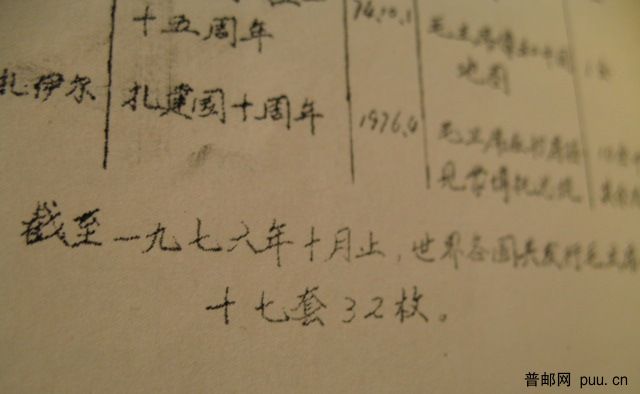 十五周年 74.10.1 毛主席像和中国
地图
扎伊尔 扎建国十周年 1976.4 毛主席在书房接
见蒙博托总统
截至一九七六年十月止,世界各国共发行毛主席
十七套32枚。
普邮网 puu.cn